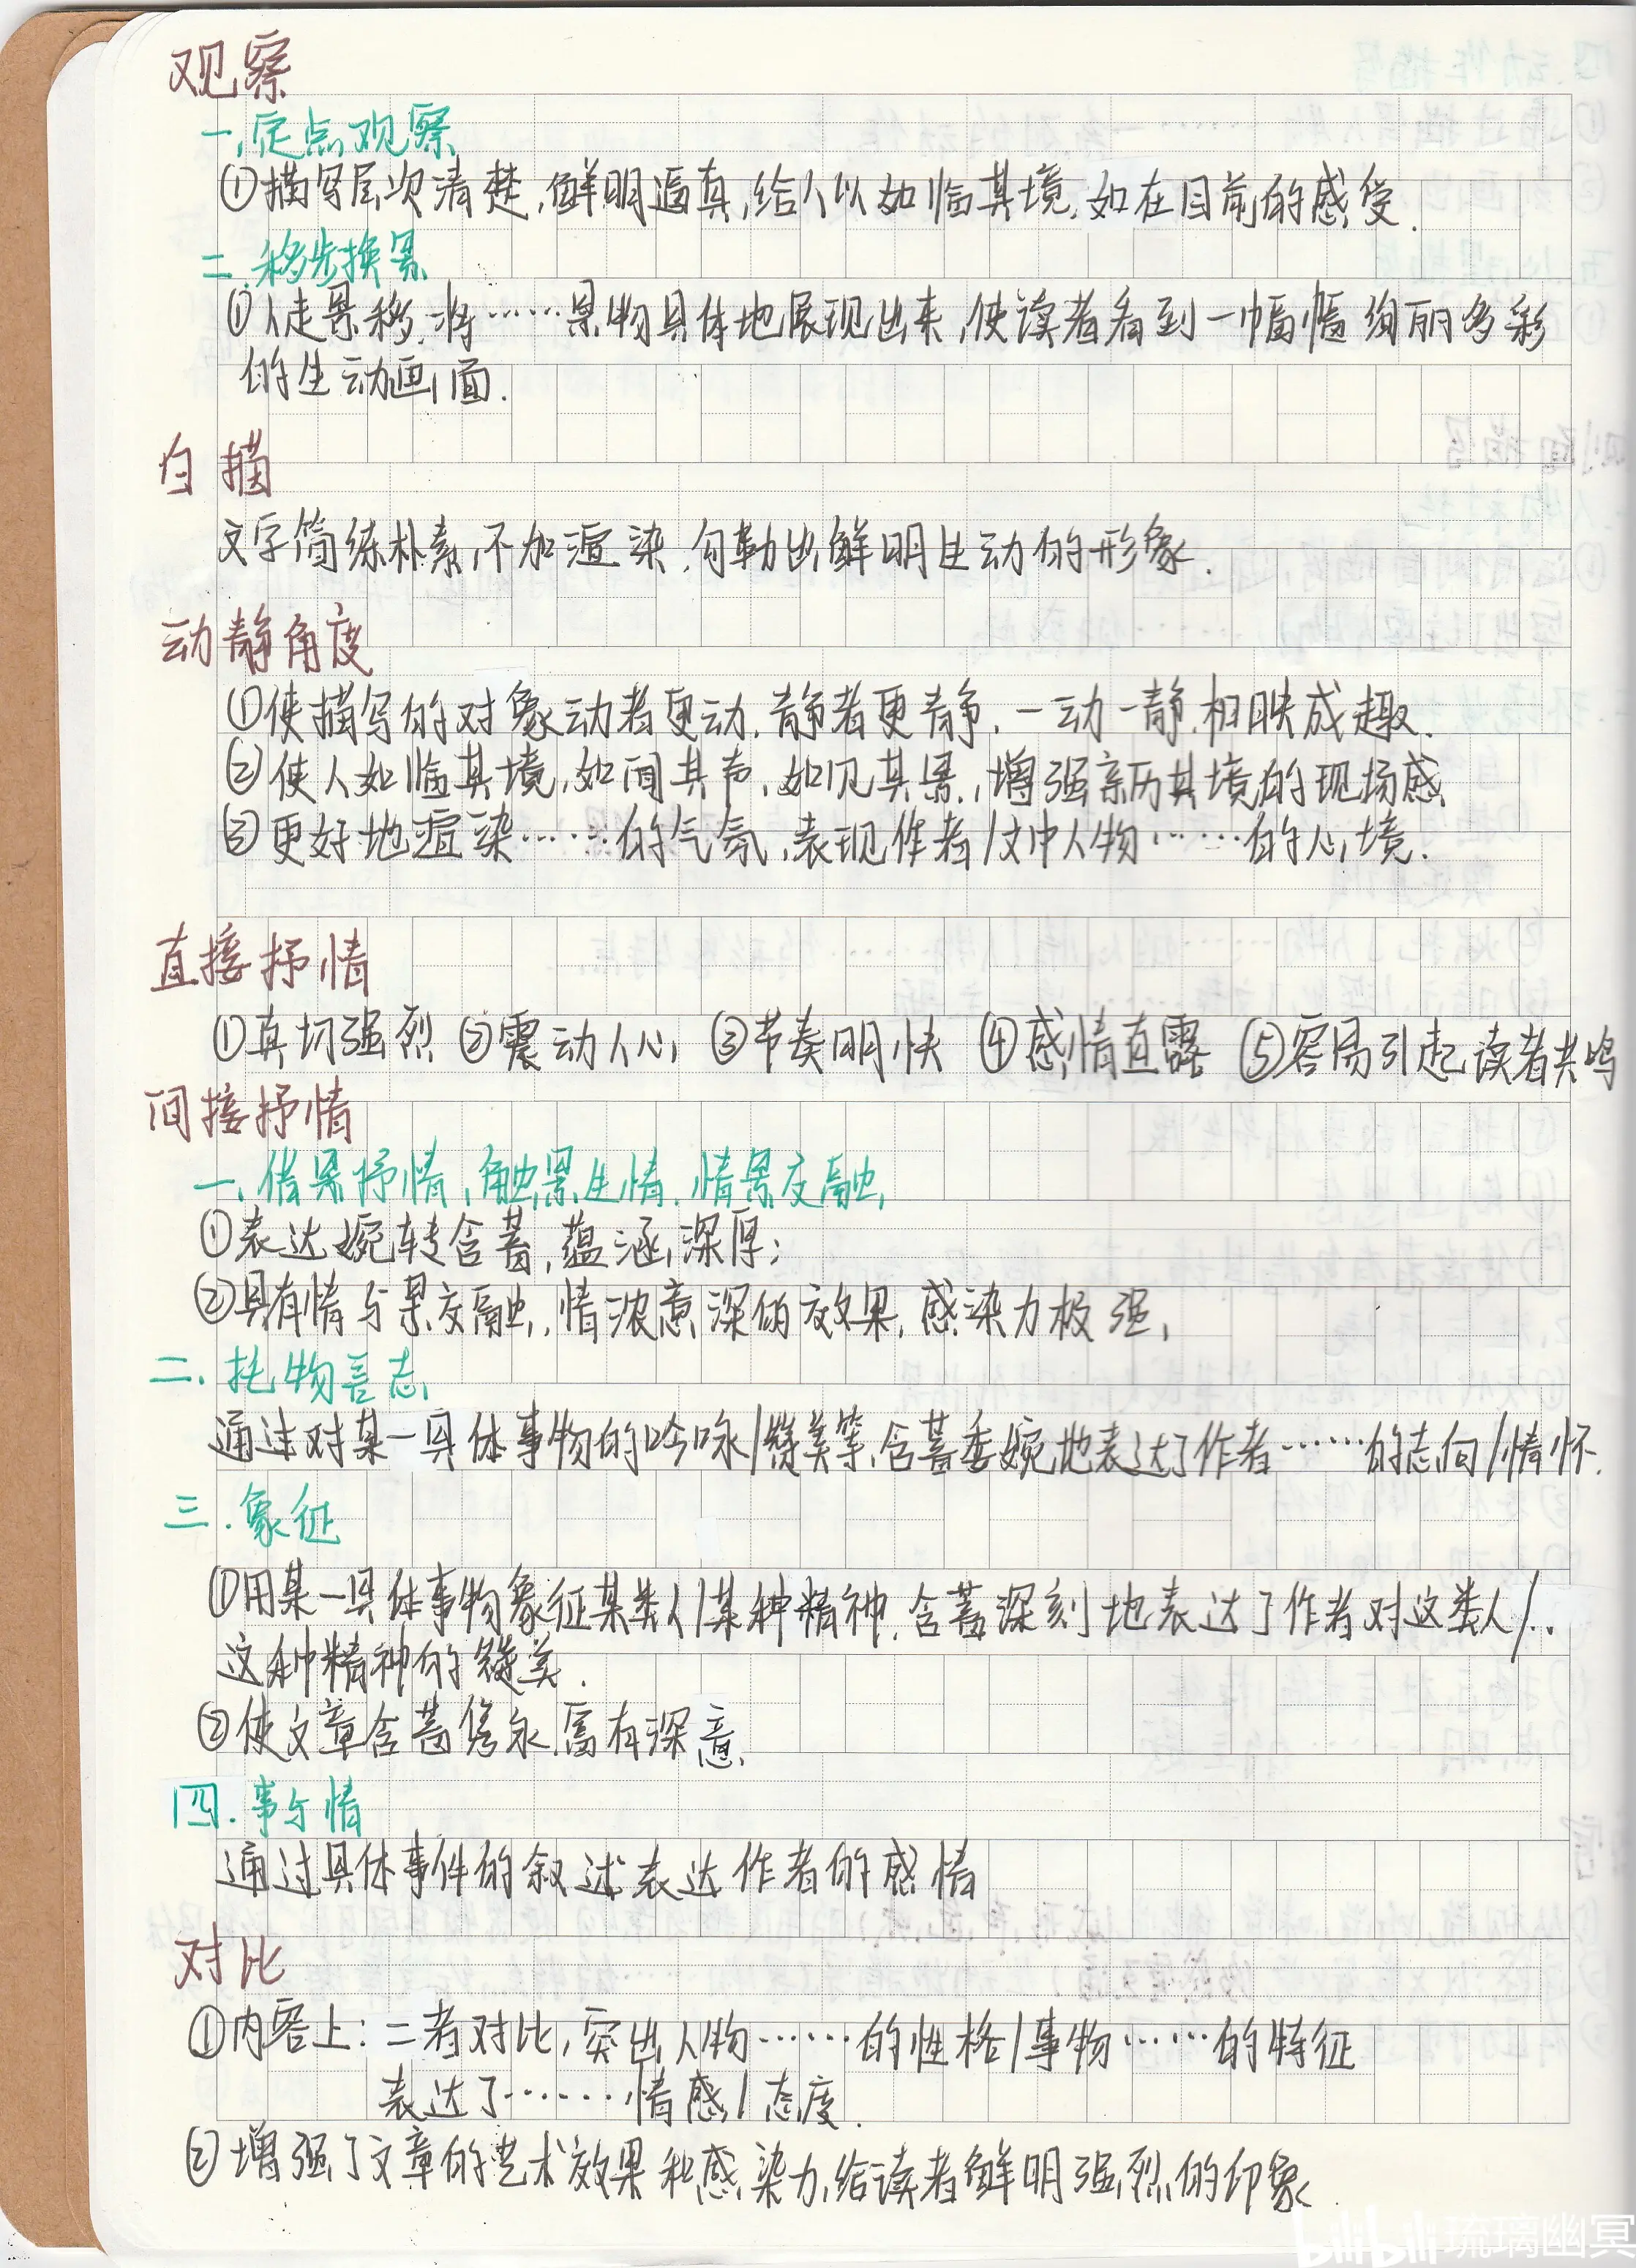 观察
一.定点观察
①描写层次清楚,鲜明逼真,给人以如临其境,如在目前的感受.
二.移步换景
①人走景移,将……景物具体地展现出来,使读者看到一幅幅绚丽多彩
的生动画面.
白描
文字简练朴素,不加渲染,勾勒出鲜明生动的形象.
动静角度
①使描写的对象动者更动,静者更静,一动一静,相映成趣.
②使人如临其境,如闻其声,如见其景,增强亲历其境的现场感
③更好地渲染……的气氛,表现作者/文中人物……的心境.
直接抒情
①真切强烈 ②震动人心 ③节奏明快 ④感情直露 ⑤容易引起读者共鸣
间接抒情
一.借景抒情,触景生情,情景交融
①表达婉转含蓄,蕴涵深厚;
②具有情与景交融,情浓意深的效果,感染力极强.
二.托物言志
通过对某一具体事物的吟咏/赞美等,含蓄委婉地表达了作者……的志向/情怀.
三.象征
①用某一具体事物象征某类人/某种精神,含蓄深刻地表达了作者对这类人/..
这种精神的赞美.
②使文章含蓄隽永,富有深意.
四.事与情
通过具体事件的叙述表达作者的感情
对比
①内容上:二者对比,突出人物……的性格/事物……的特征
表达了……情感/态度.
②增强了文章的艺术效果和感染力,给读者鲜明强烈的印象.
bilibili 琉璃幽冥